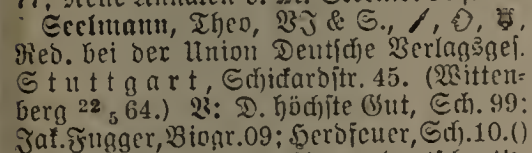 Seelmann, Theo, VJ & S.,
Red. bei der Union Deutsche Verlagsges.
Stuttgart, Schickardstr. 45. (Witten=
berg 22 5 64.) V: D. höchste Gut, Sch. 99;
Jak. Fugger, Biogr. 09; Herdfeuer, Sch. 10. ()